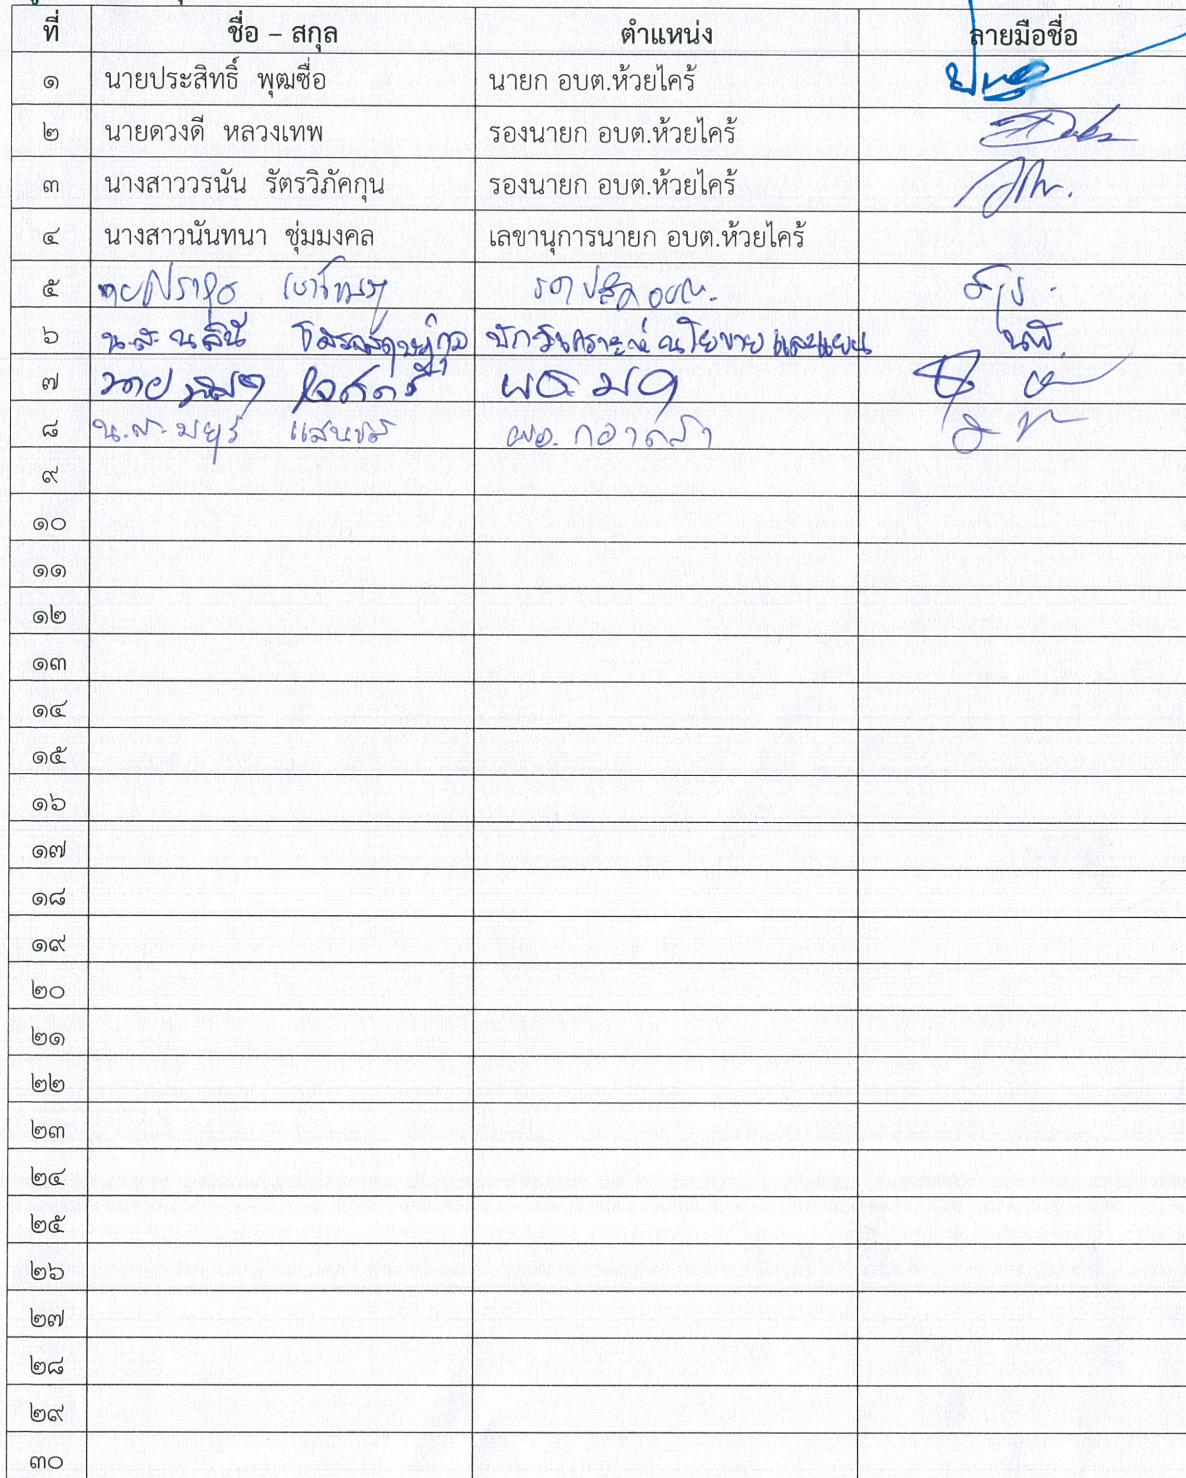 ที่ ชื่อ – สกุล ตำแหน่ง ลายมือชื่อ
๑ นายประสิทธิ์ พุฒซื่อ นายก อบต.ห้วยไคร้
๒ นายดวงดี หลวงเทพ รองนายก อบต.ห้วยไคร้
๓ นางสาววรนัน รัตรวิภัคกุน รองนายก อบต.ห้วยไคร้
๔ นางสาวนันทนา ชุ่มมงคล เลขานุการนายก อบต.ห้วยไคร้
๕ รองปลัด อบต.
๖ น.ส. นลินี นักวิเคราะห์นโยบายและแผน
๗ นาย
๘ น.ส. มยุรี ผอ. กองคลัง
๙
๑๐
๑๑
๑๒
๑๓
๑๔
๑๕
๑๖
๑๗
๑๘
๑๙
๒๐
๒๑
๒๒
๒๓
๒๔
๒๕
๒๖
๒๗
๒๘
๒๙
๓๐